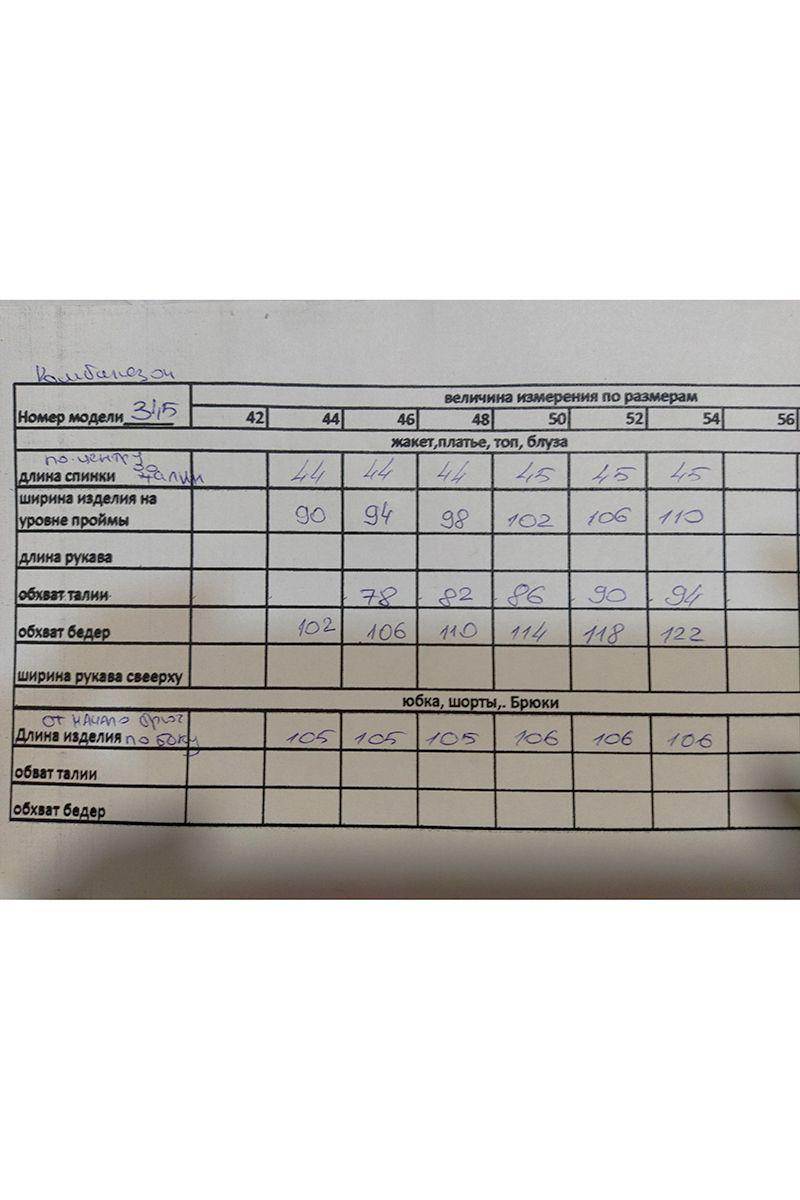 Комбинезон
величина измерения по размерам
Номер модели 345 42 44 46 48 50 52 54 56
жакет,платье, топ, блуза
по центру до талии
длина спинки 44 44 44 45 45 45
ширина изделия на
уровне проймы 90 94 98 102 106 110
длина рукава
обхват талии 78 82 86 90 94
обхват бедер 102 106 110 114 118 122
ширина рукава свеерху
юбка, шорты,. Брюки
от начало брюк
Длина изделия по боку 105 105 105 106 106 106
обват талии
обхват бедер